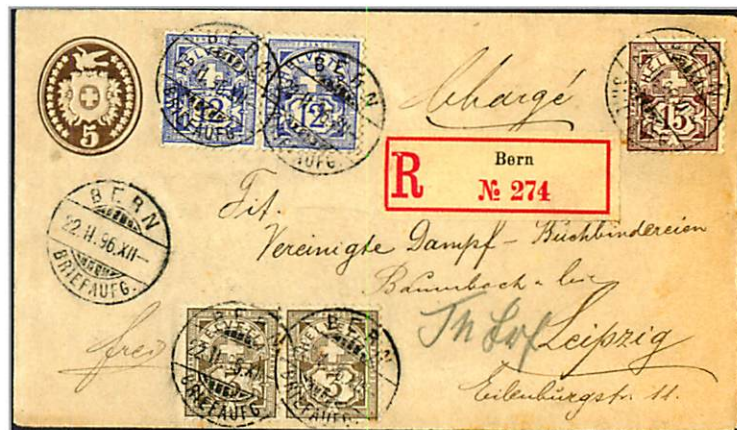 5
HELVETIA
12
12
15
BERN
BRIEFAUFG.
Chargé
R
Bern
№ 274
BERN
22.II.96.XII—
BRIEFAUFG.
Tit.
Vereinigte Dampf-Buchbindereien
Baumbach &
Leipzig
Eilenburgstr. 11.
HELVETIA
3
BERN
BRIEFAUFG.